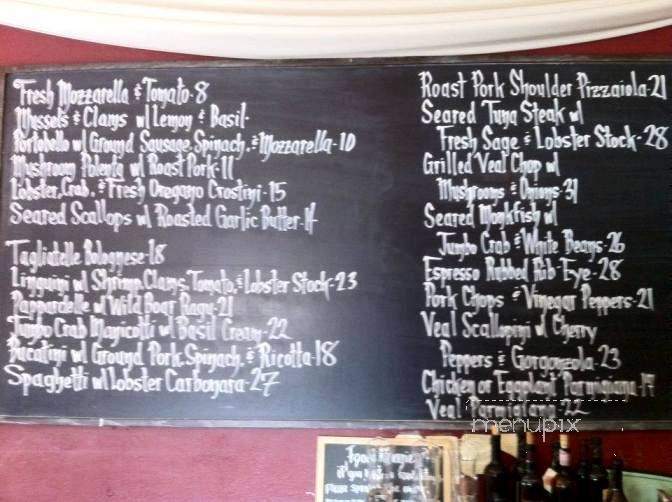 Fresh Mozzarella & Tomato-8
Mussels & Clams w/ Lemon & Basil-
Portobello w/ Ground Sausage, Spinach, & Mozzarella-10
Mushroom Polenta w/ Roast Pork-11
Lobster, Crab, & Fresh Oregano Crostini-15
Seared Scallops w/ Roasted Garlic Butter-14
Tagliatelle Bolognese-18
Linguini w/ Shrimp, Clams, Tomato, & Lobster Stock-23
Pappardelle w/ Wild Boar Ragu-21
Jumbo Crab Manicotti w/ Basil Cream-22
Bucatini w/ Ground Pork, Spinach, & Ricotta-18
Spaghetti w/ Lobster Carbonara-27
Roast Pork Shoulder Pizzaiola-21
Seared Tuna Steak w/
Fresh Sage & Lobster Stock-28
Grilled Veal Chop w/
Mushrooms & Onions-31
Seared Monkfish w/
Jumbo Crab & White Beans-26
Espresso Rubbed Rib Eye-28
Pork Chops & Vinegar Peppers-21
Veal Scallopini w/ Cherry
Peppers & Gorgonzola-23
Chicken or Eggplant Parmigiana-19
Veal Parmigiana-22
menupix